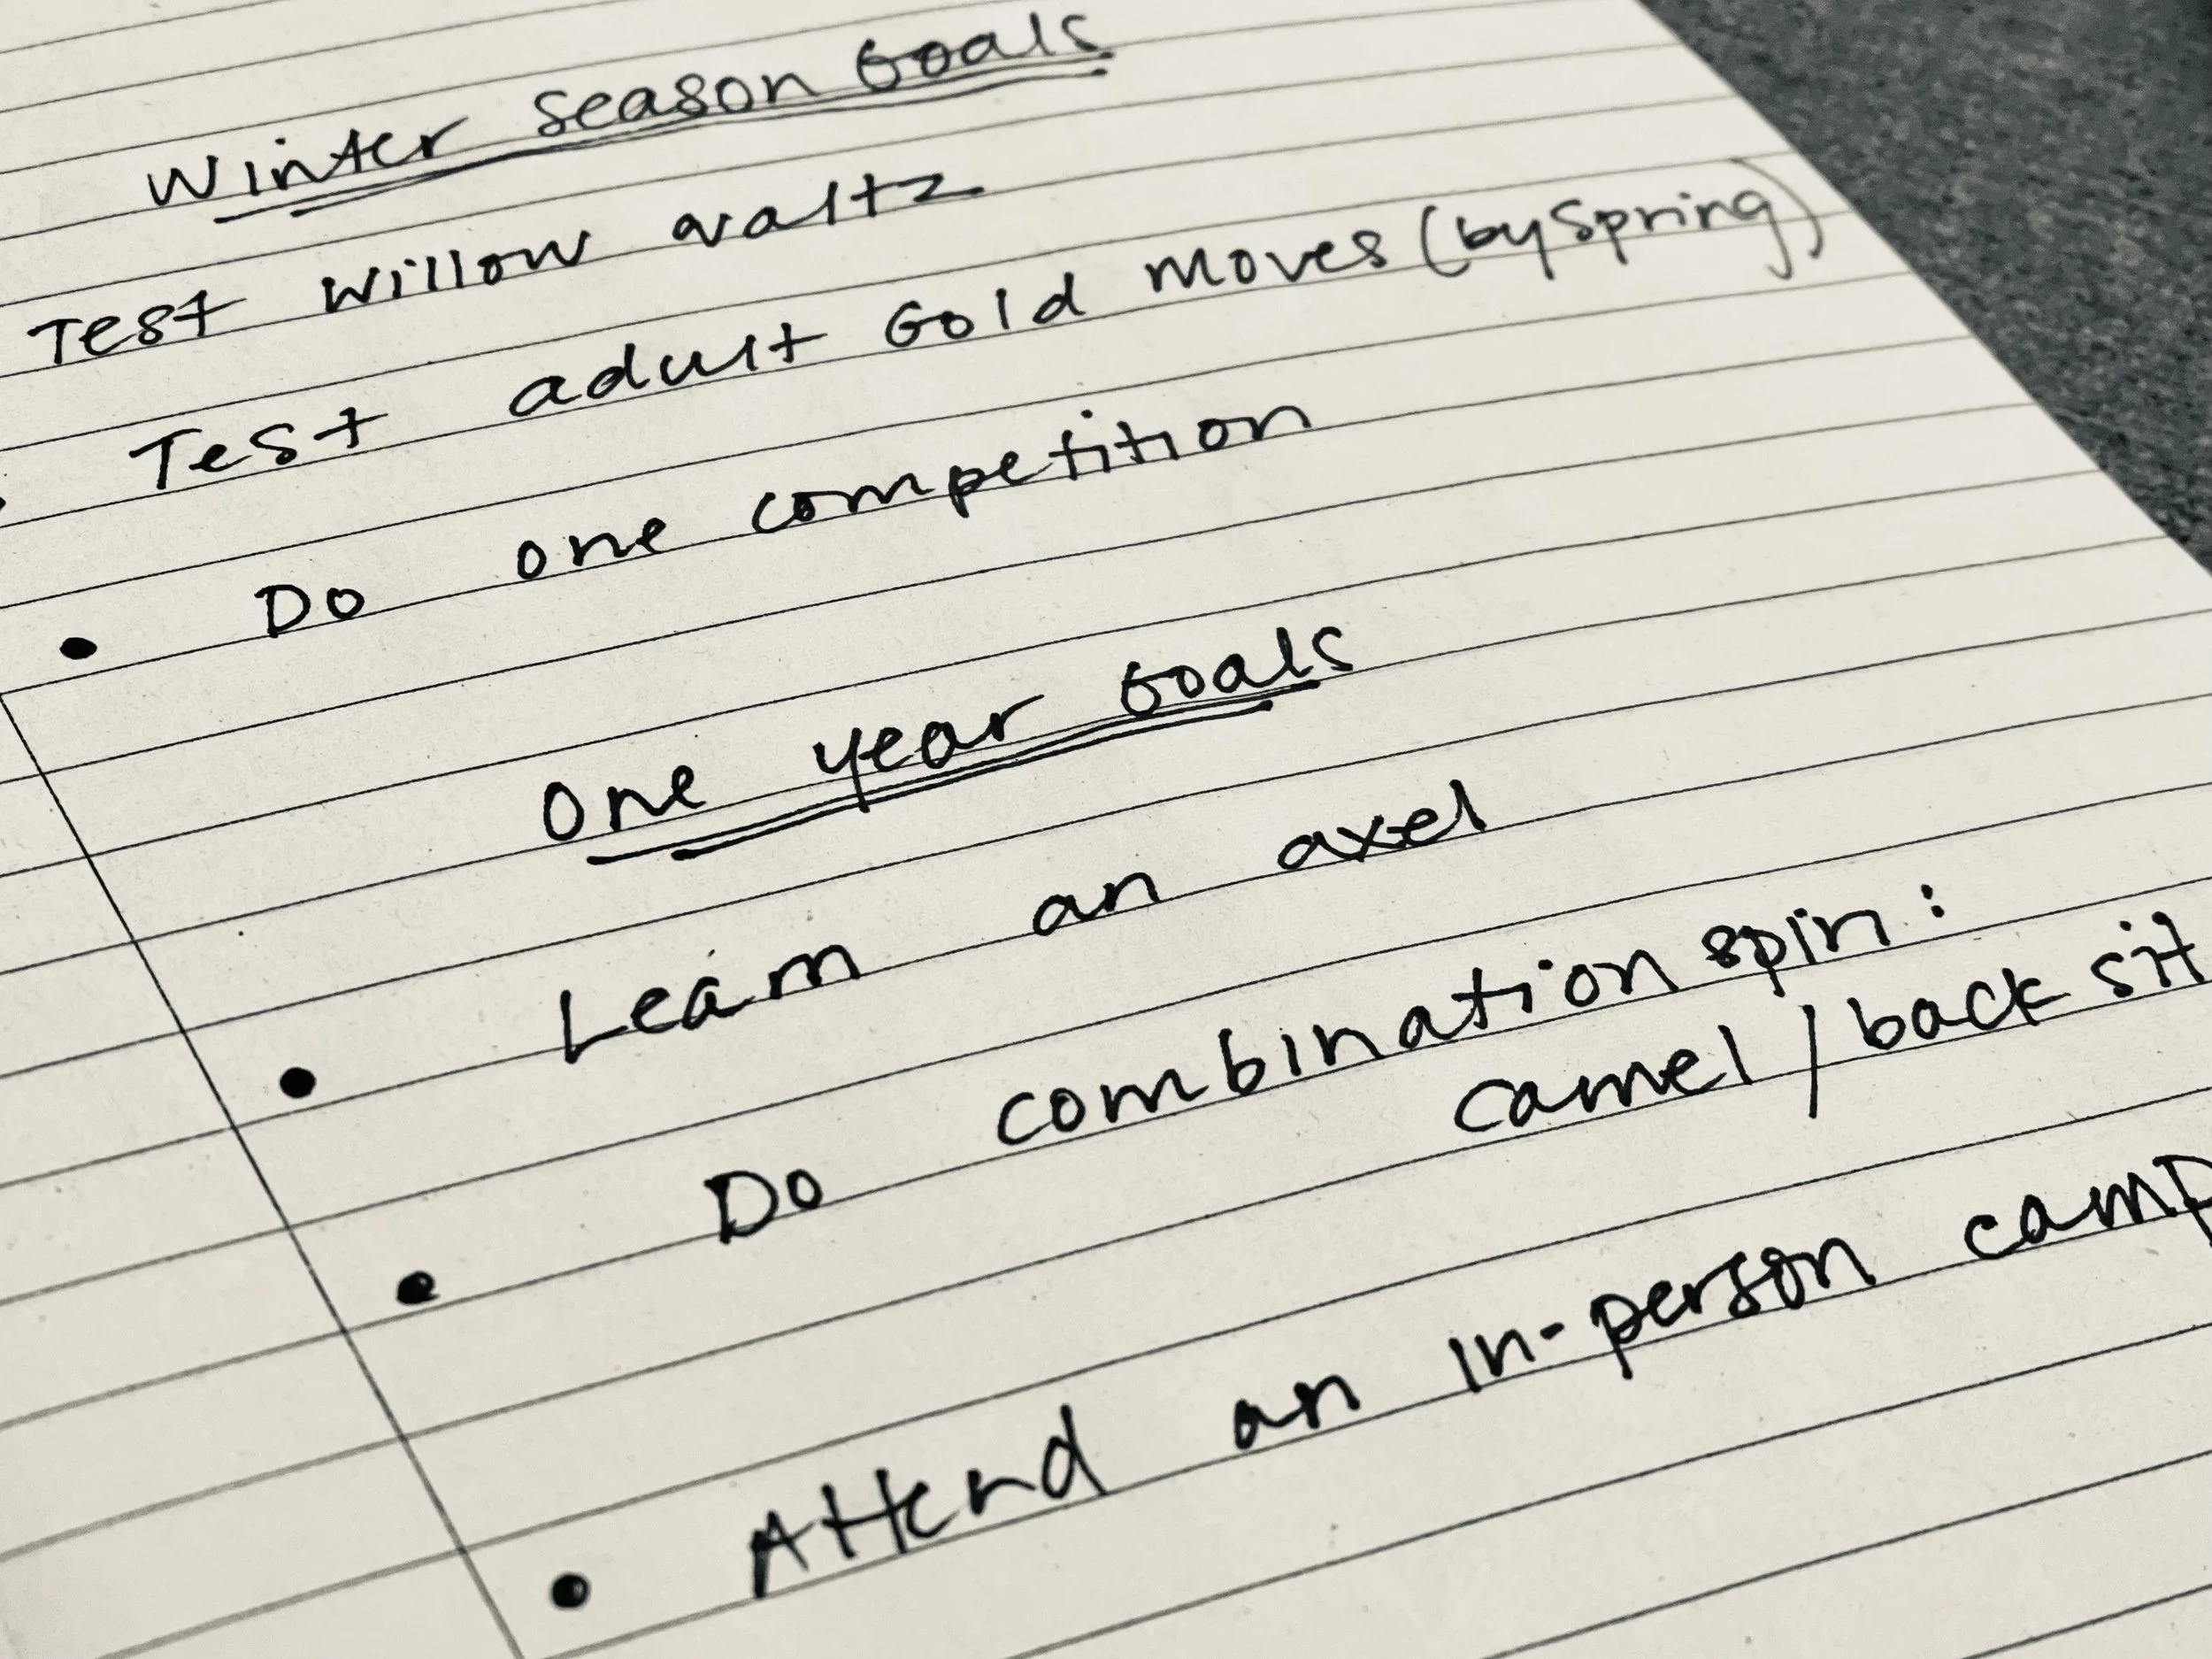 Winter Season Goals
Test Willow waltz
Test adult Gold Moves (by Spring)
• Do one competition
One year Goals
• Learn an axel
• Do combination spin:
camel / back sit
• Attend an in-person camp